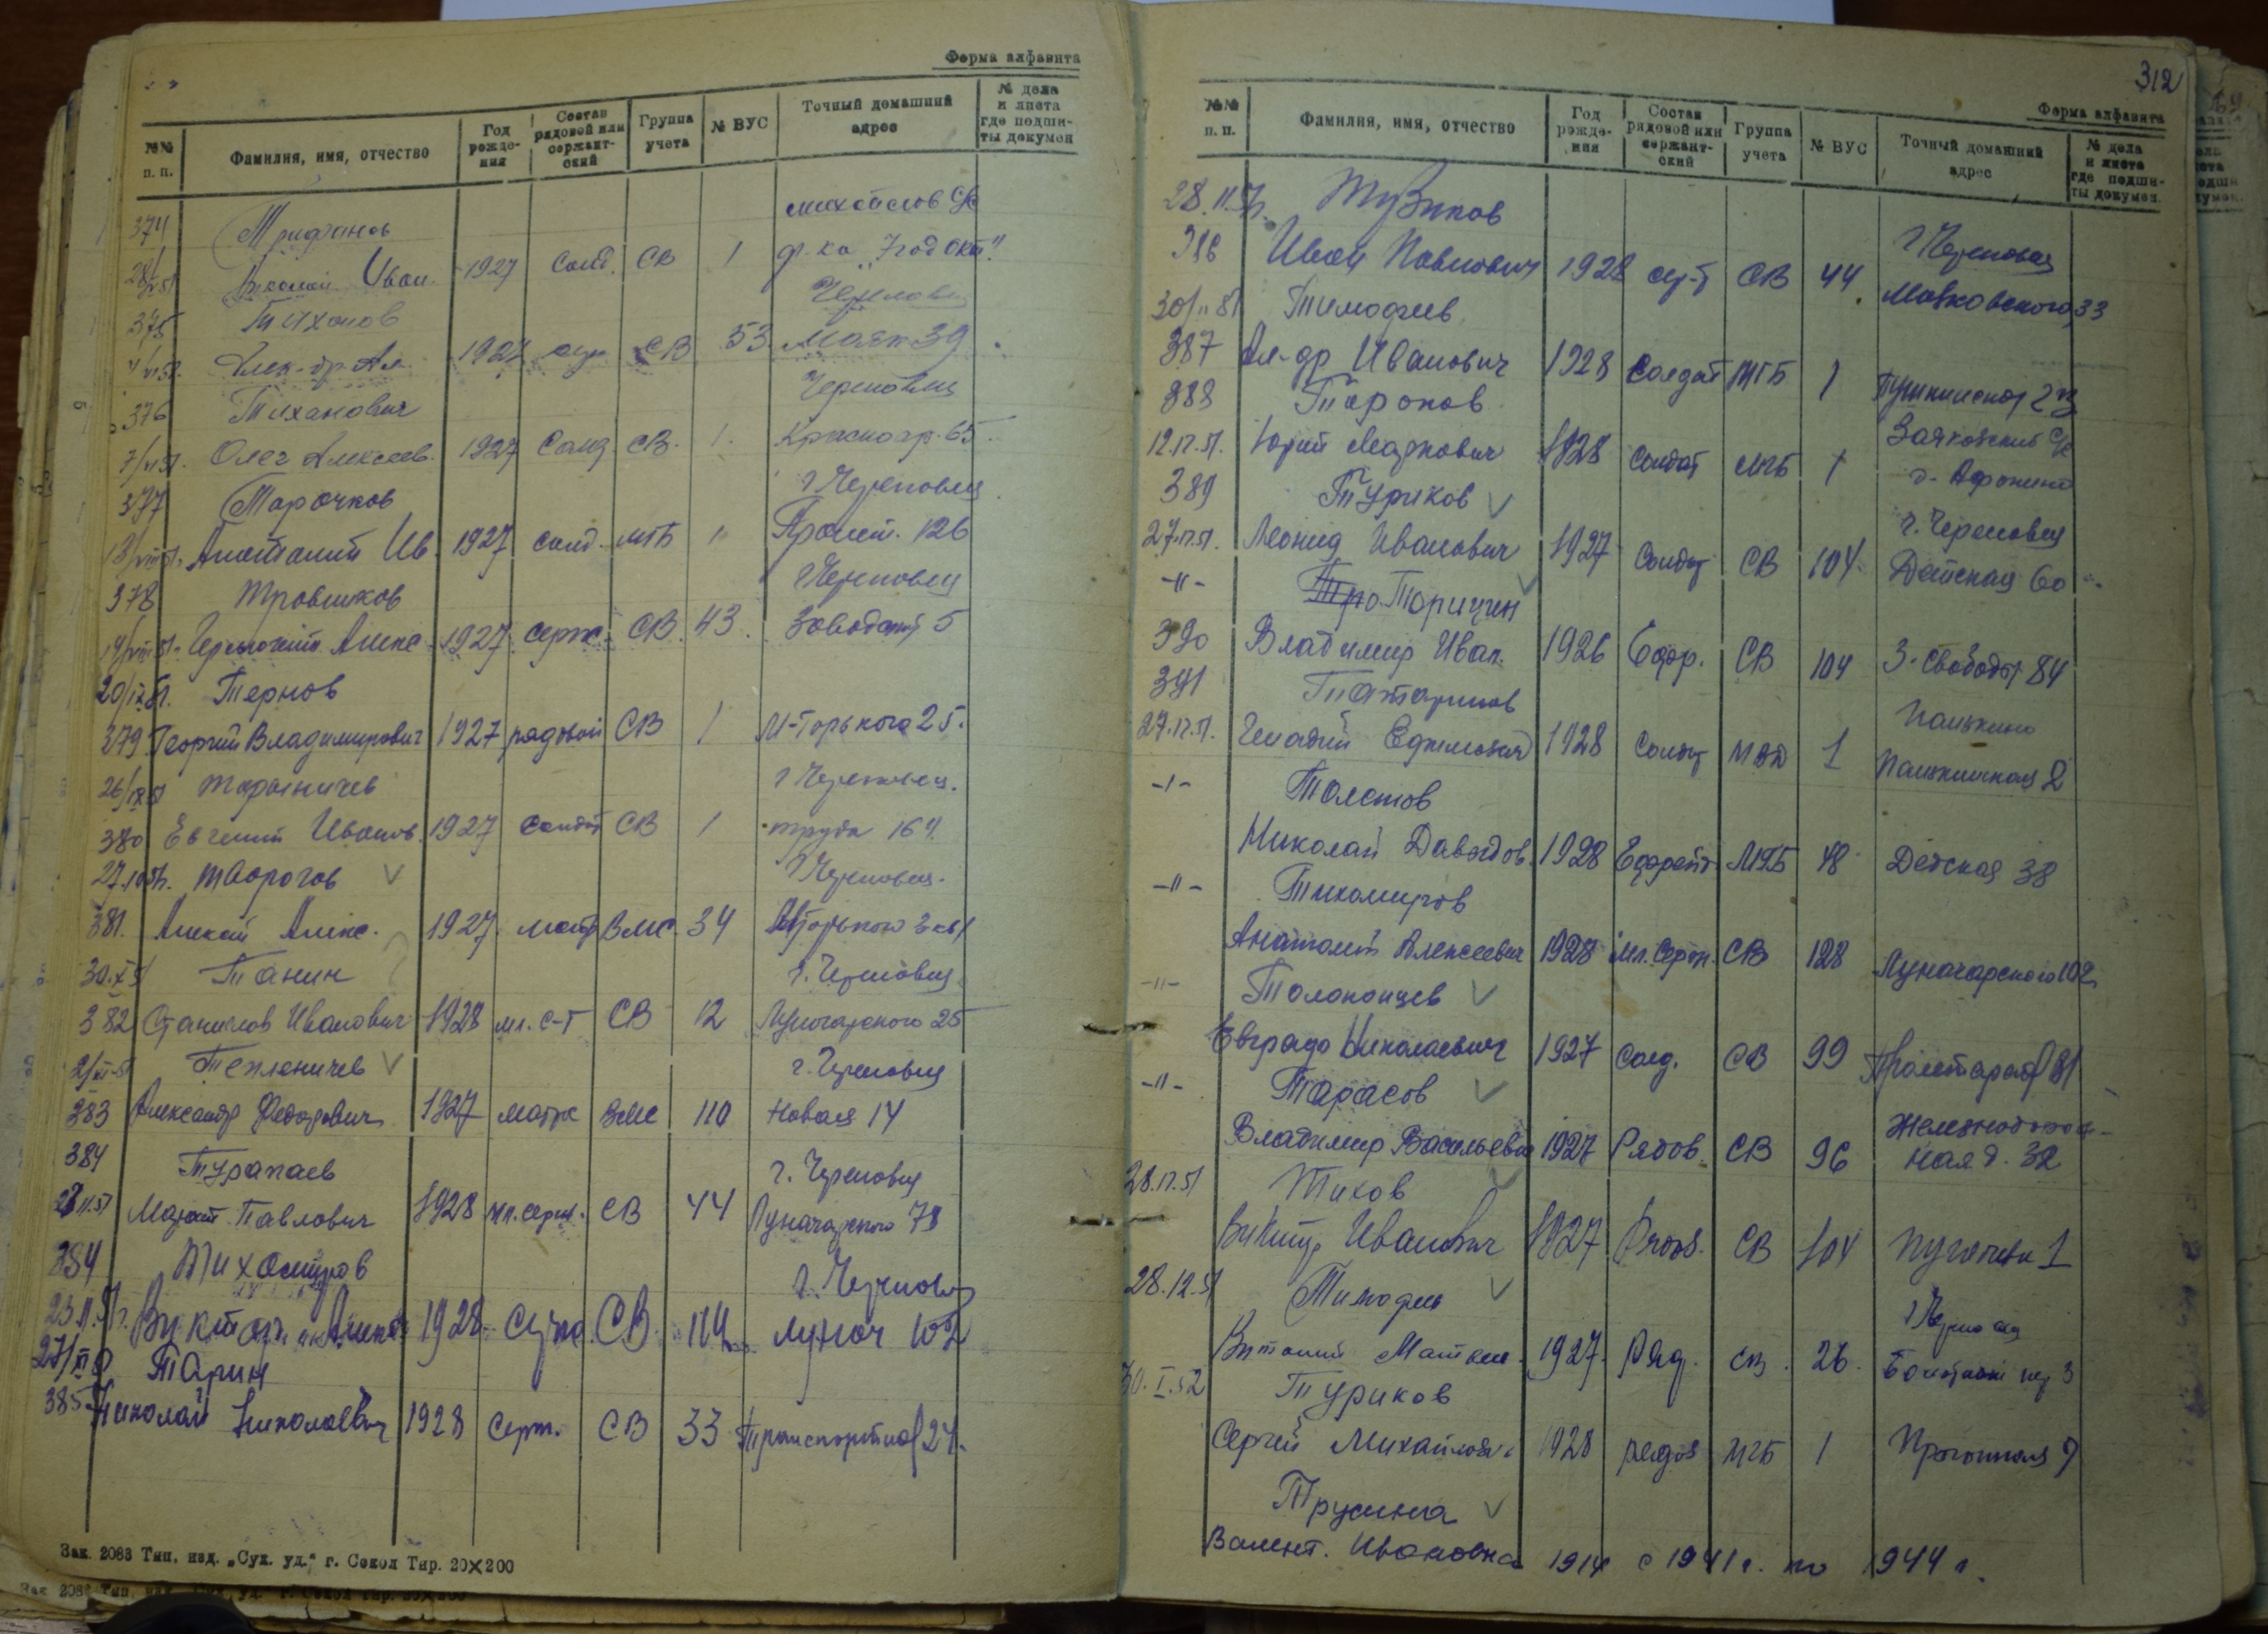 Форма алфавита
№№ п. п. Фамилия, имя, отчество Год рожде-ния Состав рядовой или сержант-ский Группа учета № ВУС Точный домашний адрес № дела и листа где подши-ты докумен
374 Трифанов
Николай Иван. 1927 Солд. СВ 1
375 Тихонов Череповец
Алек-др Ал. 1927 СВ 53 Маят 39
376 Тиханович Череповец
Олег Алексеев. 1927 Солд. СВ. 1. Красноар. 65.
377 Тарочков г Череповец
Анатолий Ив. 1927 солд. МГБ Пролет. 126
378 Травников г Череповец
Алекс. 1927 серж. СВ. 43. Заводской 5
20/IX 51. Тернов
379. Георгий Владимирович 1927 рядовой СВ 1 М-Горького 25.
26/IX 51 г Череповец.
380 Евгений Иванов. 1927 солдат СВ 1 труда 164.
27.10.51. Творогов г Череповец.
381. Алекс. 1927. матр ВМС. 34
30.X 51 Танин г. Череповец
382 Станислав Иванович 1928 мл. с-т СВ 12 Луначарского 25
Тепленичев г. Череповец
383 Александр Федорович 1927 матрс ВМС 110 Новая 14
384 Турапаев г. Череповец
Павлович 1928 мл. серж. СВ 44 Луначарского 78
384 Тихомиров г. Череповец
Виктор 1928. СВ. 114 Луноч 102
Тарин
385 Николай Николаевич 1928 серж. СВ 33 Транспортная 24.
Зак. 2083 Тип. изд. „Сух. уд.“ г. Сокол Тир. 20×200
312
Форма алфавита
№№ п. п. Фамилия, имя, отчество Год рожде-ния Состав рядовой или сержант-ский Группа учета № ВУС Точный домашний адрес № дела и листа где подши-ты докумен.
28.11.51. Тузиков г Череповец
Иван Павлович 1928 СВ 44 Маяковского, 33
Тимофеев
387 Ал-др Иванович 1928 Солдат МГБ 1 Пушкинская 23
388 Торопов
12.12.51. Юрий Маркович 1928 Солдат МГБ 1 д. Афонино
389 Туриков г. Череповец
27.12.51. Леонид Иванович 1927 Солдат СВ 104 Детская 60
-"- Торицин
390 Владимир Иван. 1926 Ефр. СВ 104 З. Свободы 84
391 Татаринов Панькино
27.12.51. Генадий Ефимович 1928 Солдат МВД 1 Панькинская 2
-"- Толстов
Николай Давыдов. 1928 Ефрейт. МГБ 48 Детская 38
-"- Тихомиров
Анатолий Алексеевич 1928 Мл. Серж. СВ 128 Луначарского 102
-"- Толоконцев
Евграф Николаевич 1927 Солд. СВ 99 Пролетарская 81
-"- Тарасов Железнодорож-
Владимир Васильевич 1927 Рядов. СВ 96 ная д. 32
28.12.51 Тихов
Виктор Иванович 1927 Рядов. СВ 104 Пугачева 1
28.12.51
1927. Ряд. СВ. 26.
30.I.52 Туриков
Сергей Михайлов. 1928 рядов МГБ 1
Трусина
Валент. Ивановна 1914 с 1941 г. по 1944 г.